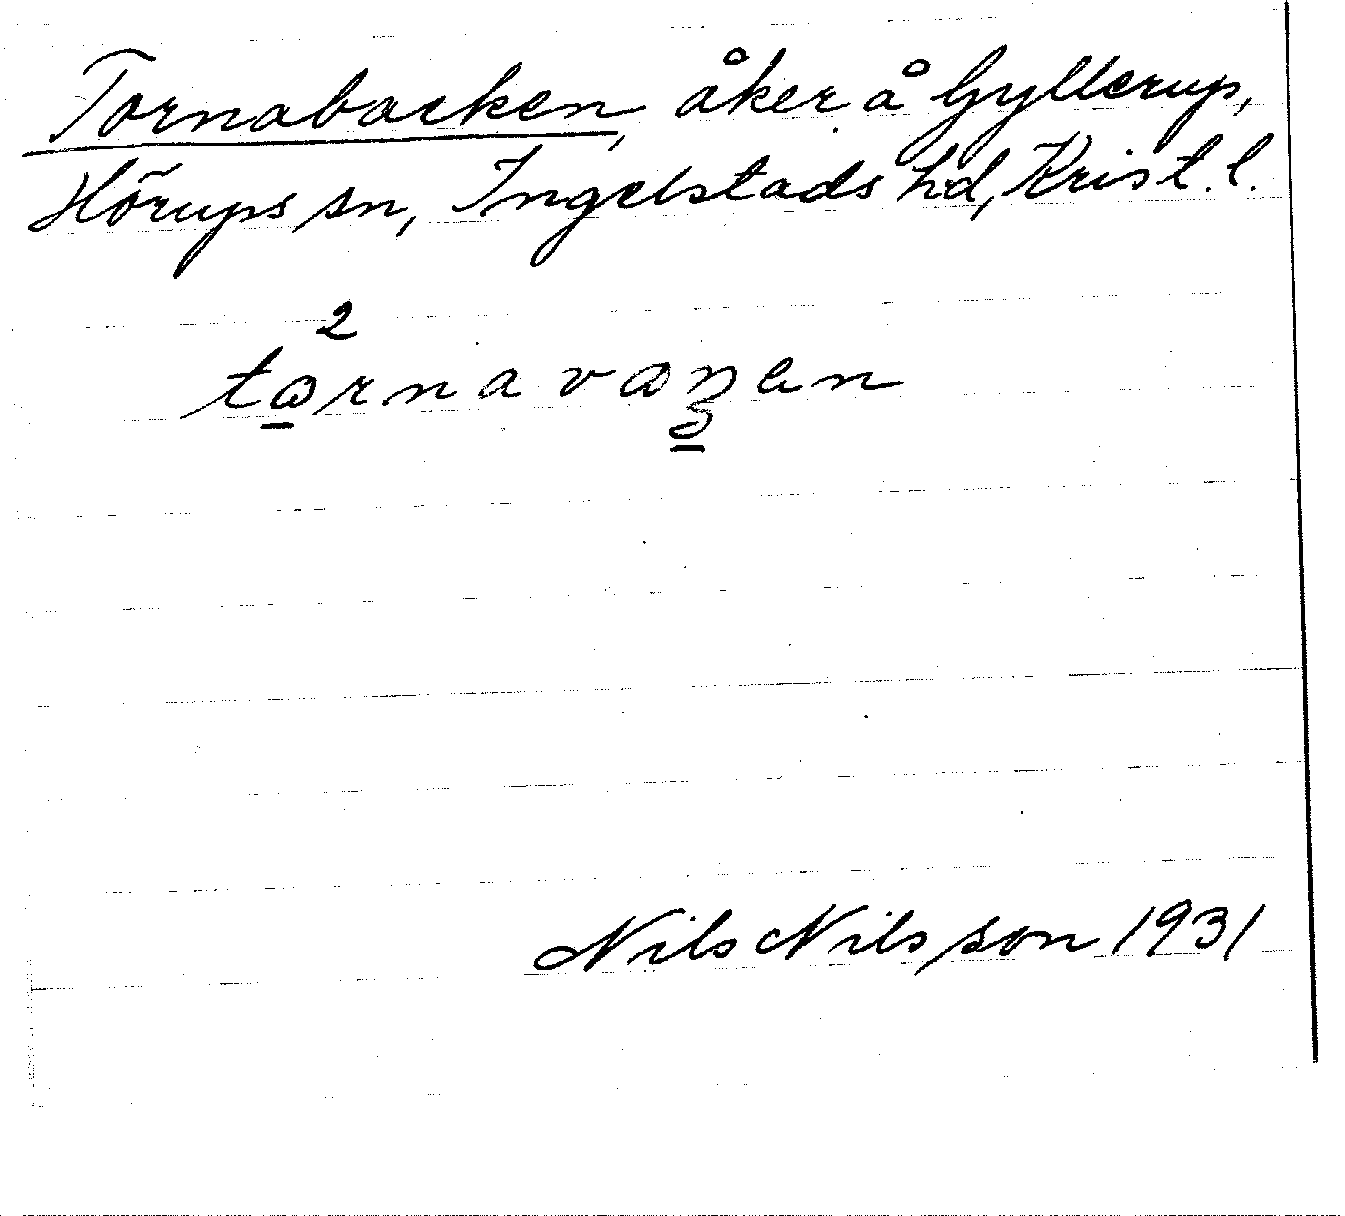 Tornabacken, åker å Gyllerup,
Hörups sn, Ingelstads hd, Krist. l.
2
Nils Nilsson 1931